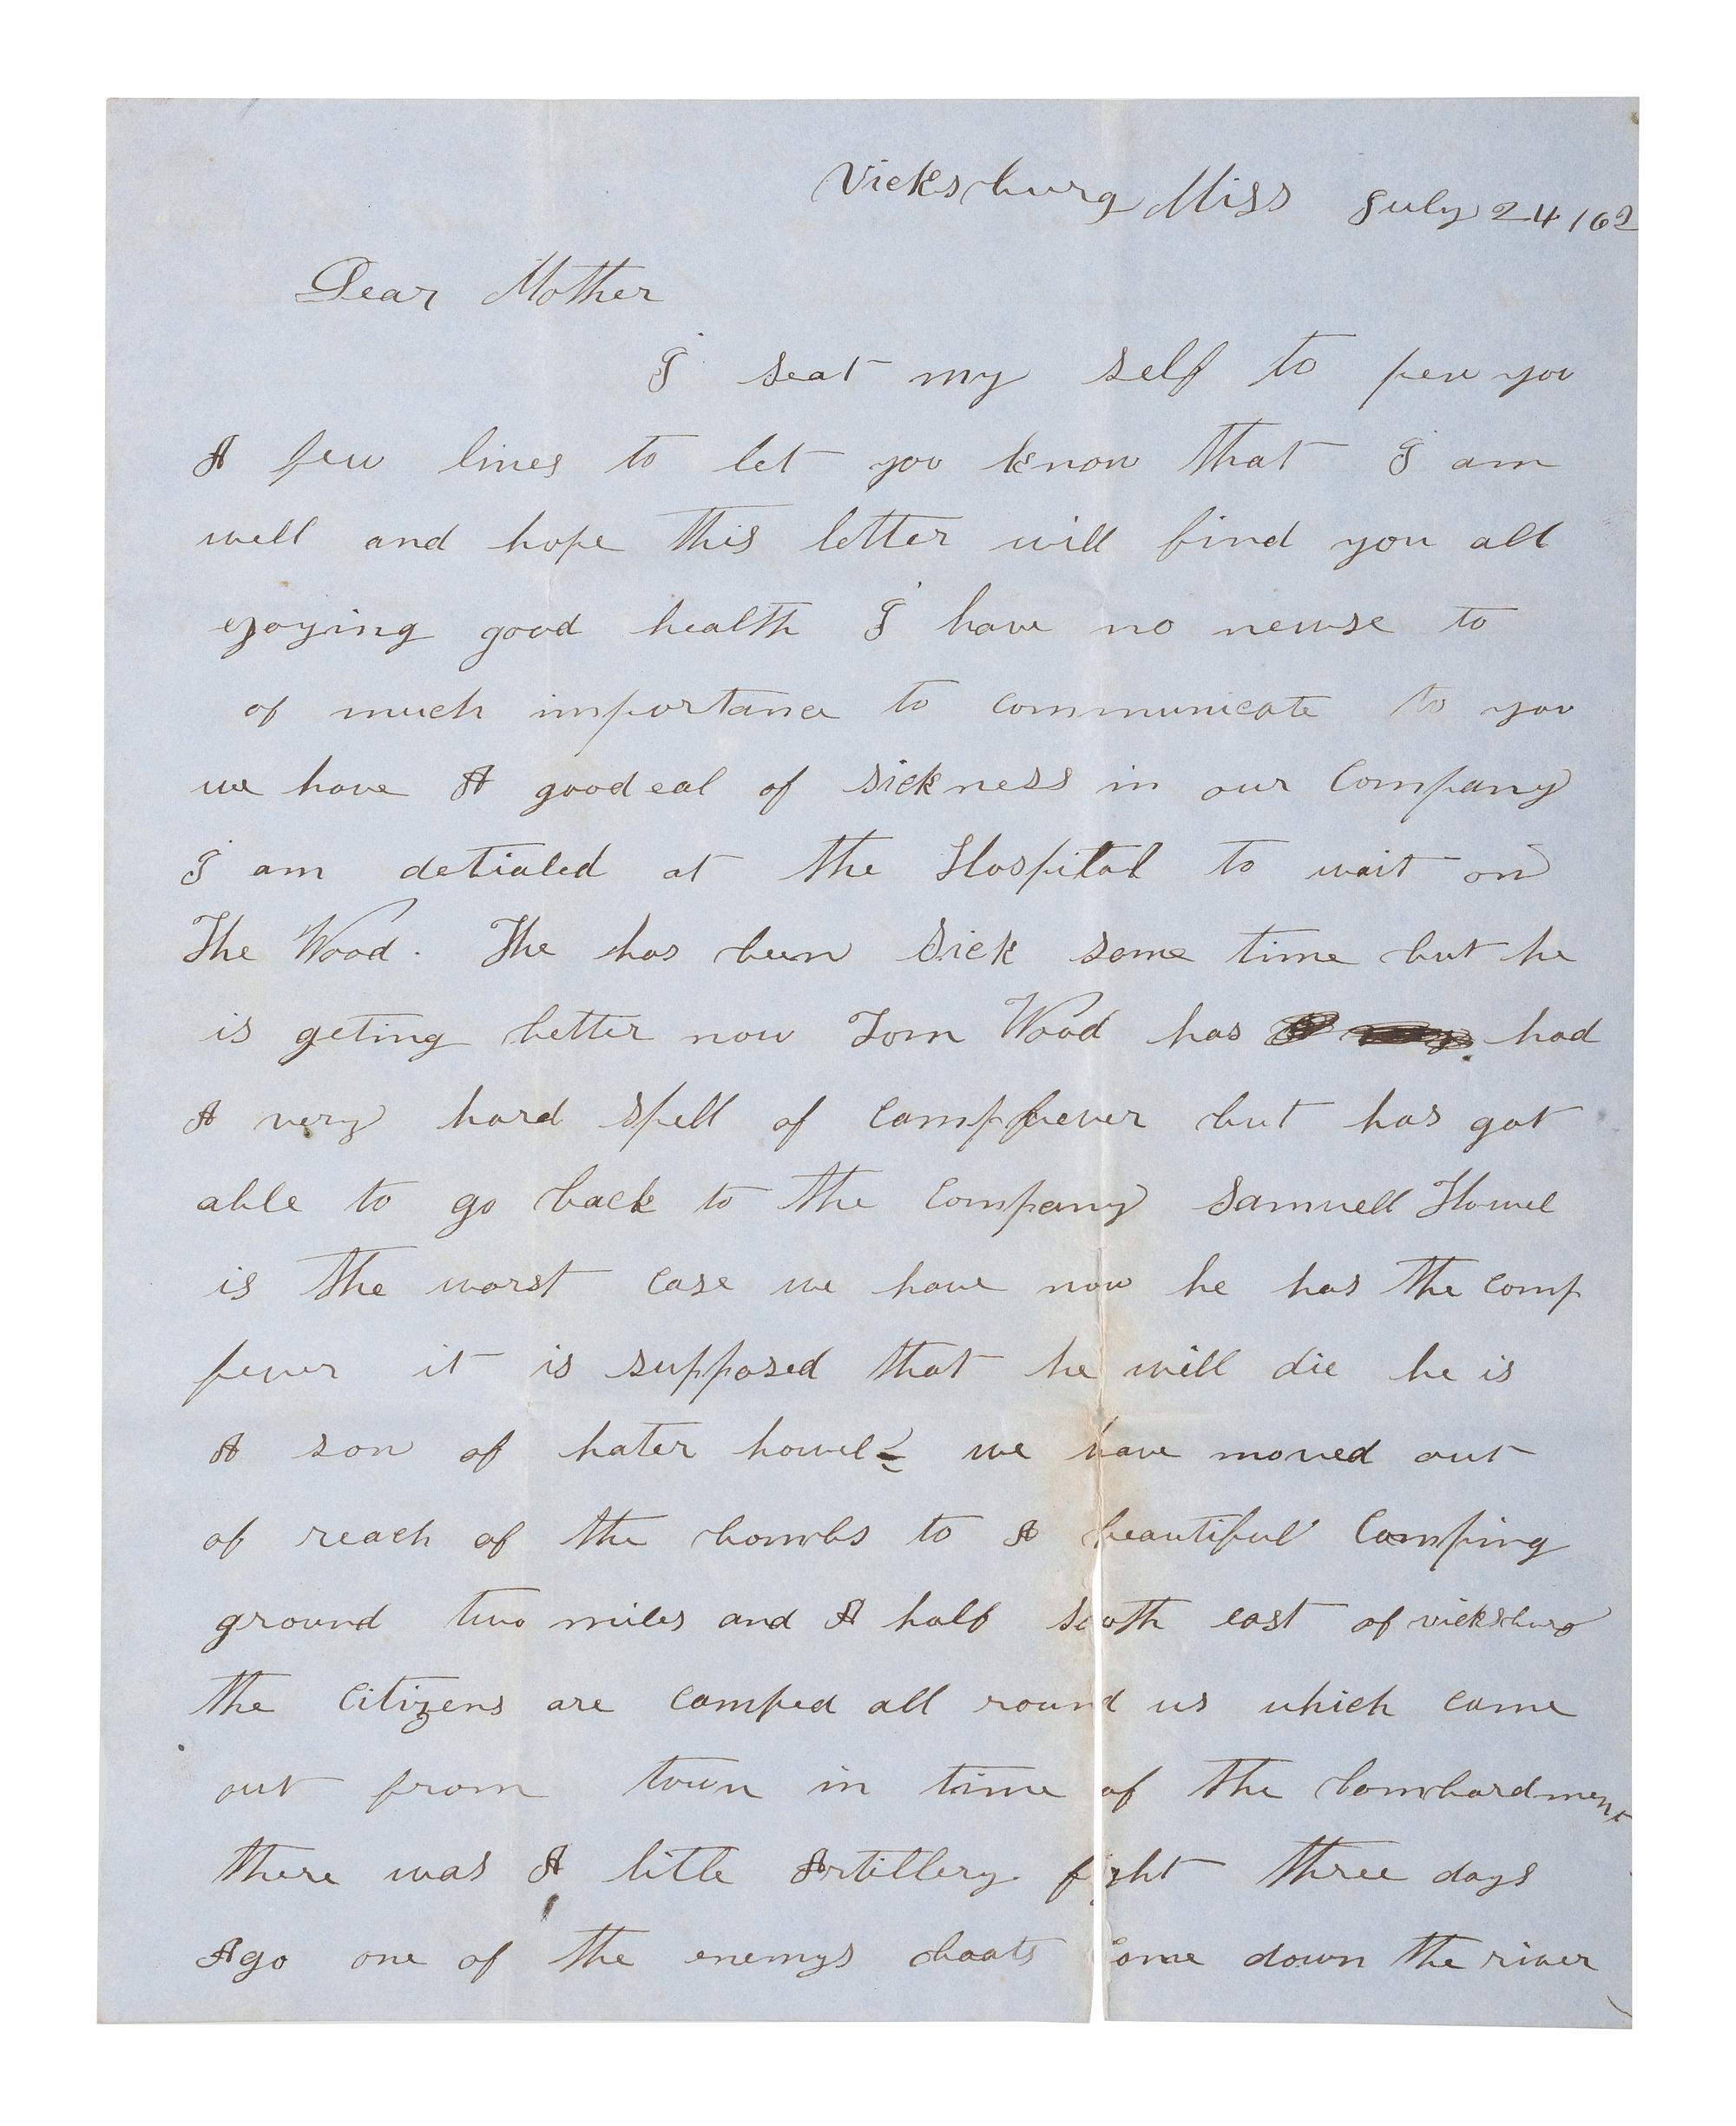 Vicksburg Miss July 24 /62
Dear Mother
I seat my self to pen you
A few lines to let you know that I am
well and hope this letter will find you all
ejoying good health I have no newse to
of much importance to communicate to you
we have A goodeal of sickness in our Company
I am detialed at the Hospital to wait on
The Wood. The has been sick some time but he
is geting better now Tom Wood has had
A very hard spell of campfever but has got
able to go back to the Company Samuell Howel
is the worst case we have now he has the camp
fever it is supposed that he will die he is
A son of hater howel we have moved out
of reach of the bombs to A beautiful Camping
ground two miles and A half south east of vicksburg
the Citizens are camped all round us which came
out from town in time of the bombardment
there was A litle Artillery fight three days
Ago one of the enemys boats come down the river